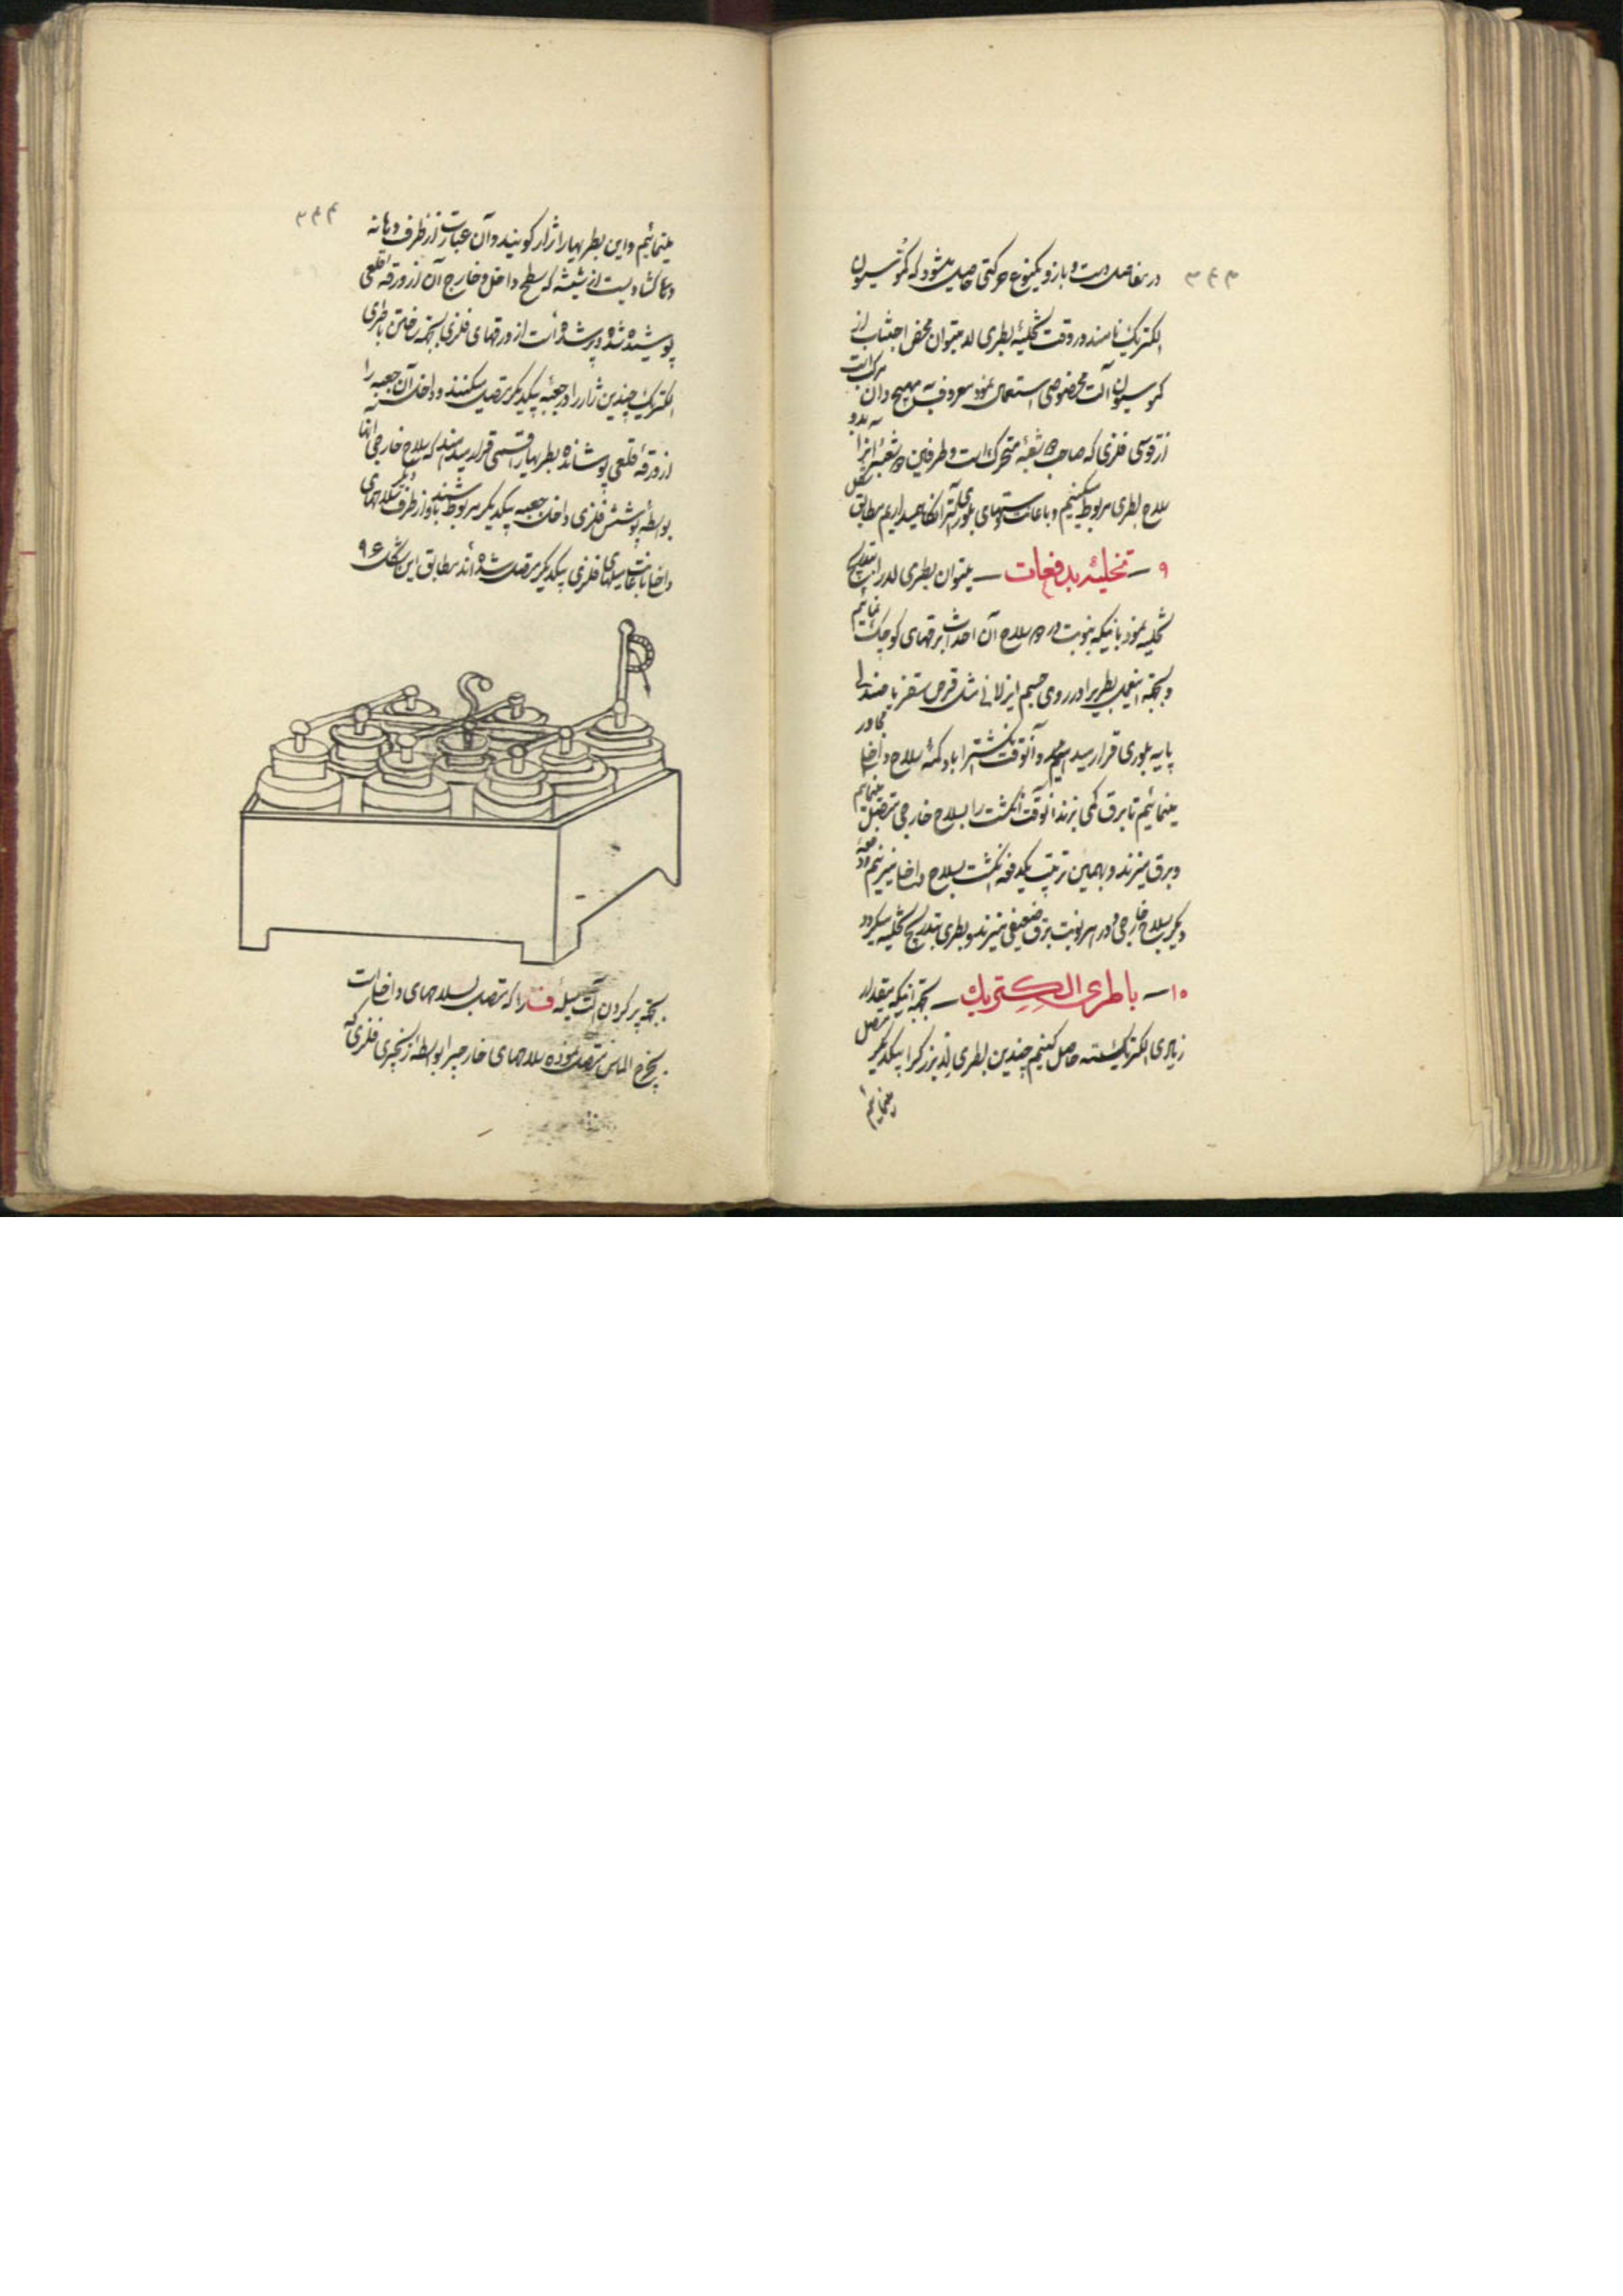 ۳۴۳
در مفاصل دست و بازو یکنوع حرکتی حاصل میشود که کموسیون
الکتریک نامند در وقت تخلیهٔ بطری لد میتوان محض اجتناب از
کموسیون آلت مخصوصی استعمال نمود معروف به مهیج و آن مرکب است
از قوسی فلزی که صاحب دو شعبهٔ متحرک است و طرفین دو شعبه را به دو
سلاح بطری مربوط میکنیم و باعانت دستهای بلوری آلت را نگاه میداریم مطابق شکل
۹ — تخلیه بدفعات — میتوان بطری لد را بتدریج
تخلیه نمود باینکه بنوبت در دو سلاح آن احداث برقهای کوچک نمائیم
و بجهة اینعمل بطری را در روی جسم ایزلانی مثل قرص سقز یا صندلی
پایه بلوری قرار میدهیم و آنوقت انگشت را با دکمهٔ سلاح داخل مجاور
مینمائیم تا برق کمی بزند آنوقت انگشت را بسلاح خارجی متصل مینمائیم
و برق میزند و بهمین ترتیب یکدفعه انگشت بسلاح داخل میزنیم و دفعهٔ
دیگر بسلاح خارجی و در هر نوبت برق ضعیفی میزند و بطری بتدریج تخلیه میگردد
۱۰ — باطری الکتریک — بجهة آنیکه مقدار
زیادی الکتریسیته حاصل کنیم چندین بطری لد بزرگ را بیکدیگر متصل
مینمائیم
۳۴۴
مینمائیم و این بطریها را ژار گویند و آن عبارت از ظرف دهانه
گشادیست از شیشه که سطح داخل و خارج آن از ورقه قلعی
پوشیده شده و پر شده است از ورقهای فلزی بجهة ساختن باطری
الکتریک چندین ژار را در جعبه بیکدیگر متصل میکنند و داخل آن جعبه را
از ورقهٔ قلعی پوشانده بطریها را قسمی قرار میدهند که سلاح خارجی آنها
بواسطهٔ پوشش فلزی داخل جعبه بیکدیگر مربوط باشند و از طرف دیگر سلاحهای
داخل باعانت میلهای فلزی بیکدیگر متصل شده‌اند مطابق این شکل ۹۶
بجهة پر کردن آلت میلهٔ را که متصل بسلاحهای داخل است
بمخرج الماس متصل نموده سلاحهای خارجی را بواسطهٔ زنجیری فلزی که